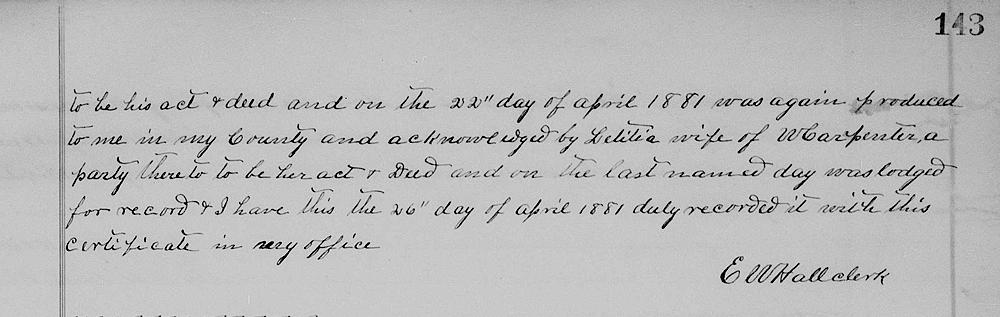 143
to be his act & deed and on the 22" day of april 1881 was again produced
to me in my County and acknowledged by Letitia wife of W Carpenter, a
party thereto to be her act & Deed and on the last named day was lodged
for record & I have this the 26" day of april 1881 duly recorded it with this
certificate in my office
E W Hall clerk